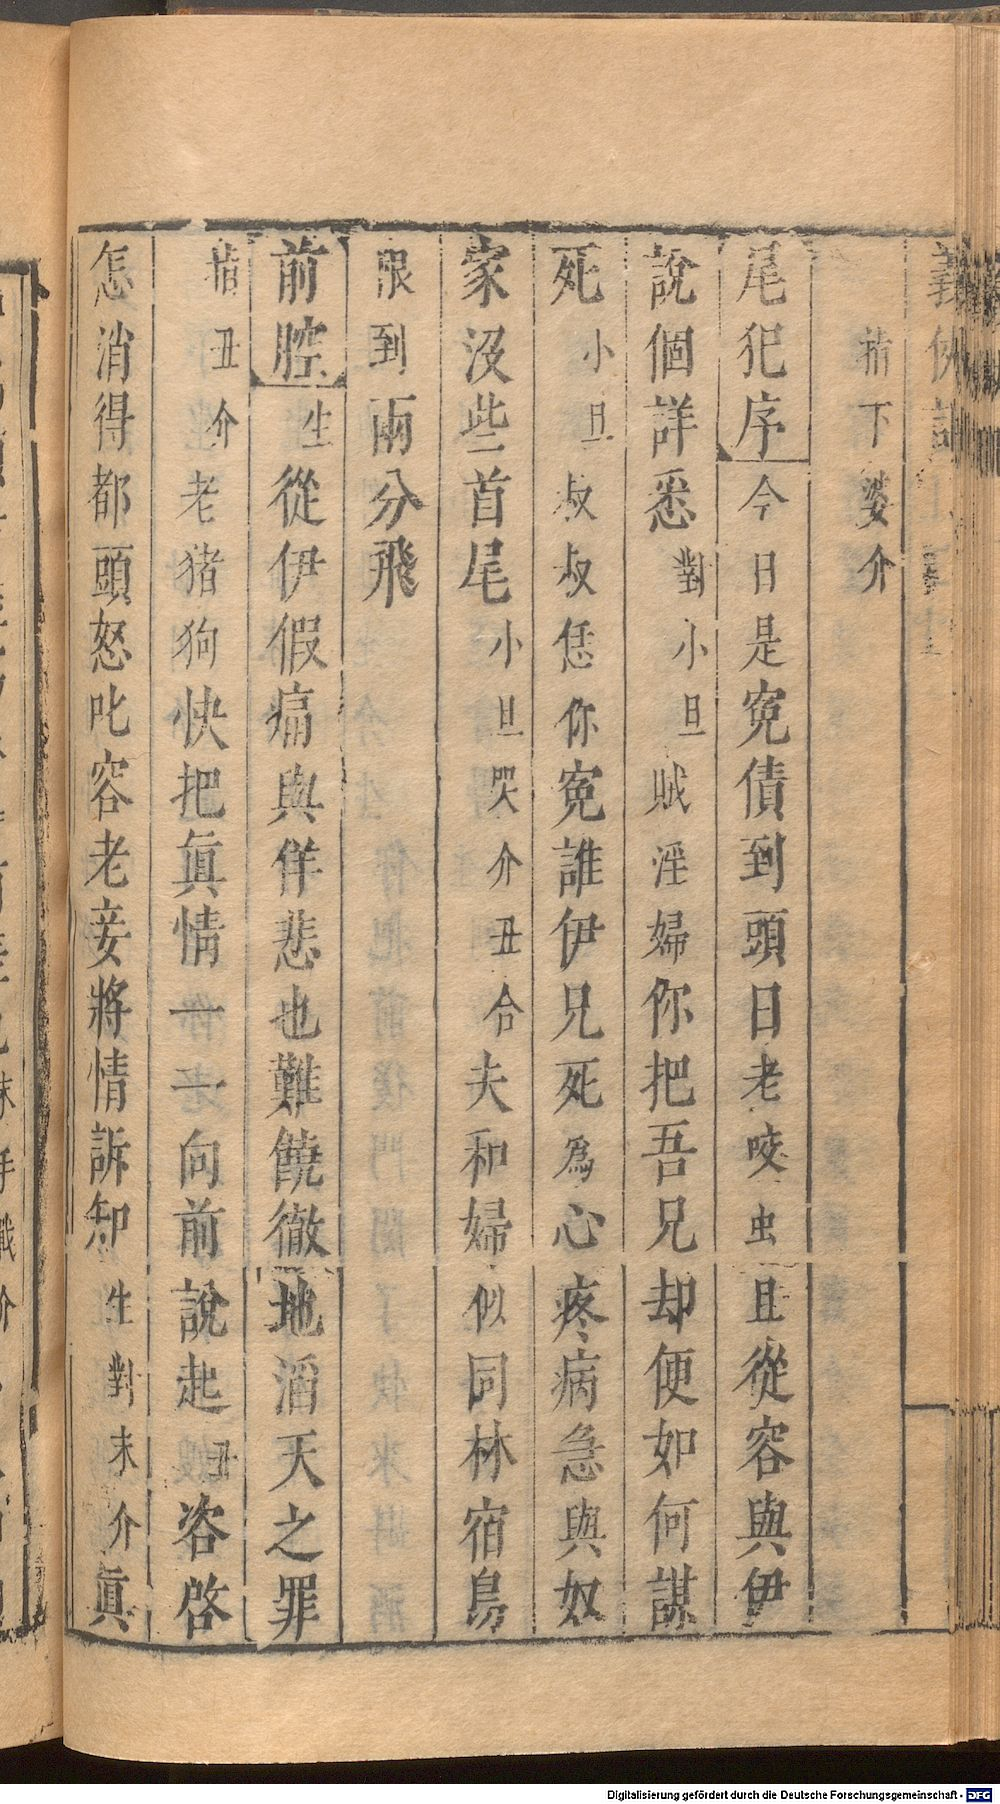 揪下婆介
尾犯序今日是寃債到頭日老咬虫且從容與伊
說個詳悉對小旦賊淫婦你把吾兄却便如何謀
死小旦叔叔恁你寃誰伊兄死爲心疼病急與奴
家沒些首尾小旦哭介丑合夫和婦似同林宿鳥
限到兩分飛
前腔生從伊假痛與佯悲也難饒徹地滔天之罪
揪丑介老猪狗快把眞情一一向前說起丑咨啓
怎消得都頭怒叱容老妾將情訴知生對末介眞
Digitalisierung gefördert durch die Deutsche Forschungsgemeinschaft - DFG